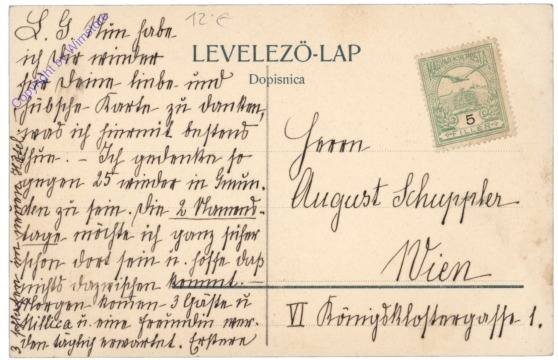 12.-€
LEVELEZŐ-LAP
Dopisnica
MAGYAR KIR. POSTA
5
FILLÉR
Copyright by Wimstore
L. G. Nun habe
ich Dir wieder
für Deine liebe und
hübsche Karte zu danken,
was ich hiermit bestens
thue. – Ich gedenke so
gegen 25 wieder in Gmun-
den zu sein. Die 2 Namens-
tage möchte ich ganz sicher
schon dort sein u. hoffe daß
nichts dazwischen kommt. –
Morgen kommen 3 Gäste u
Millica u. eine Freundin wer-
den täglich erwartet. Erstere
Herrn
August Schuppler
Wien
VI Königsklostergasse 1.